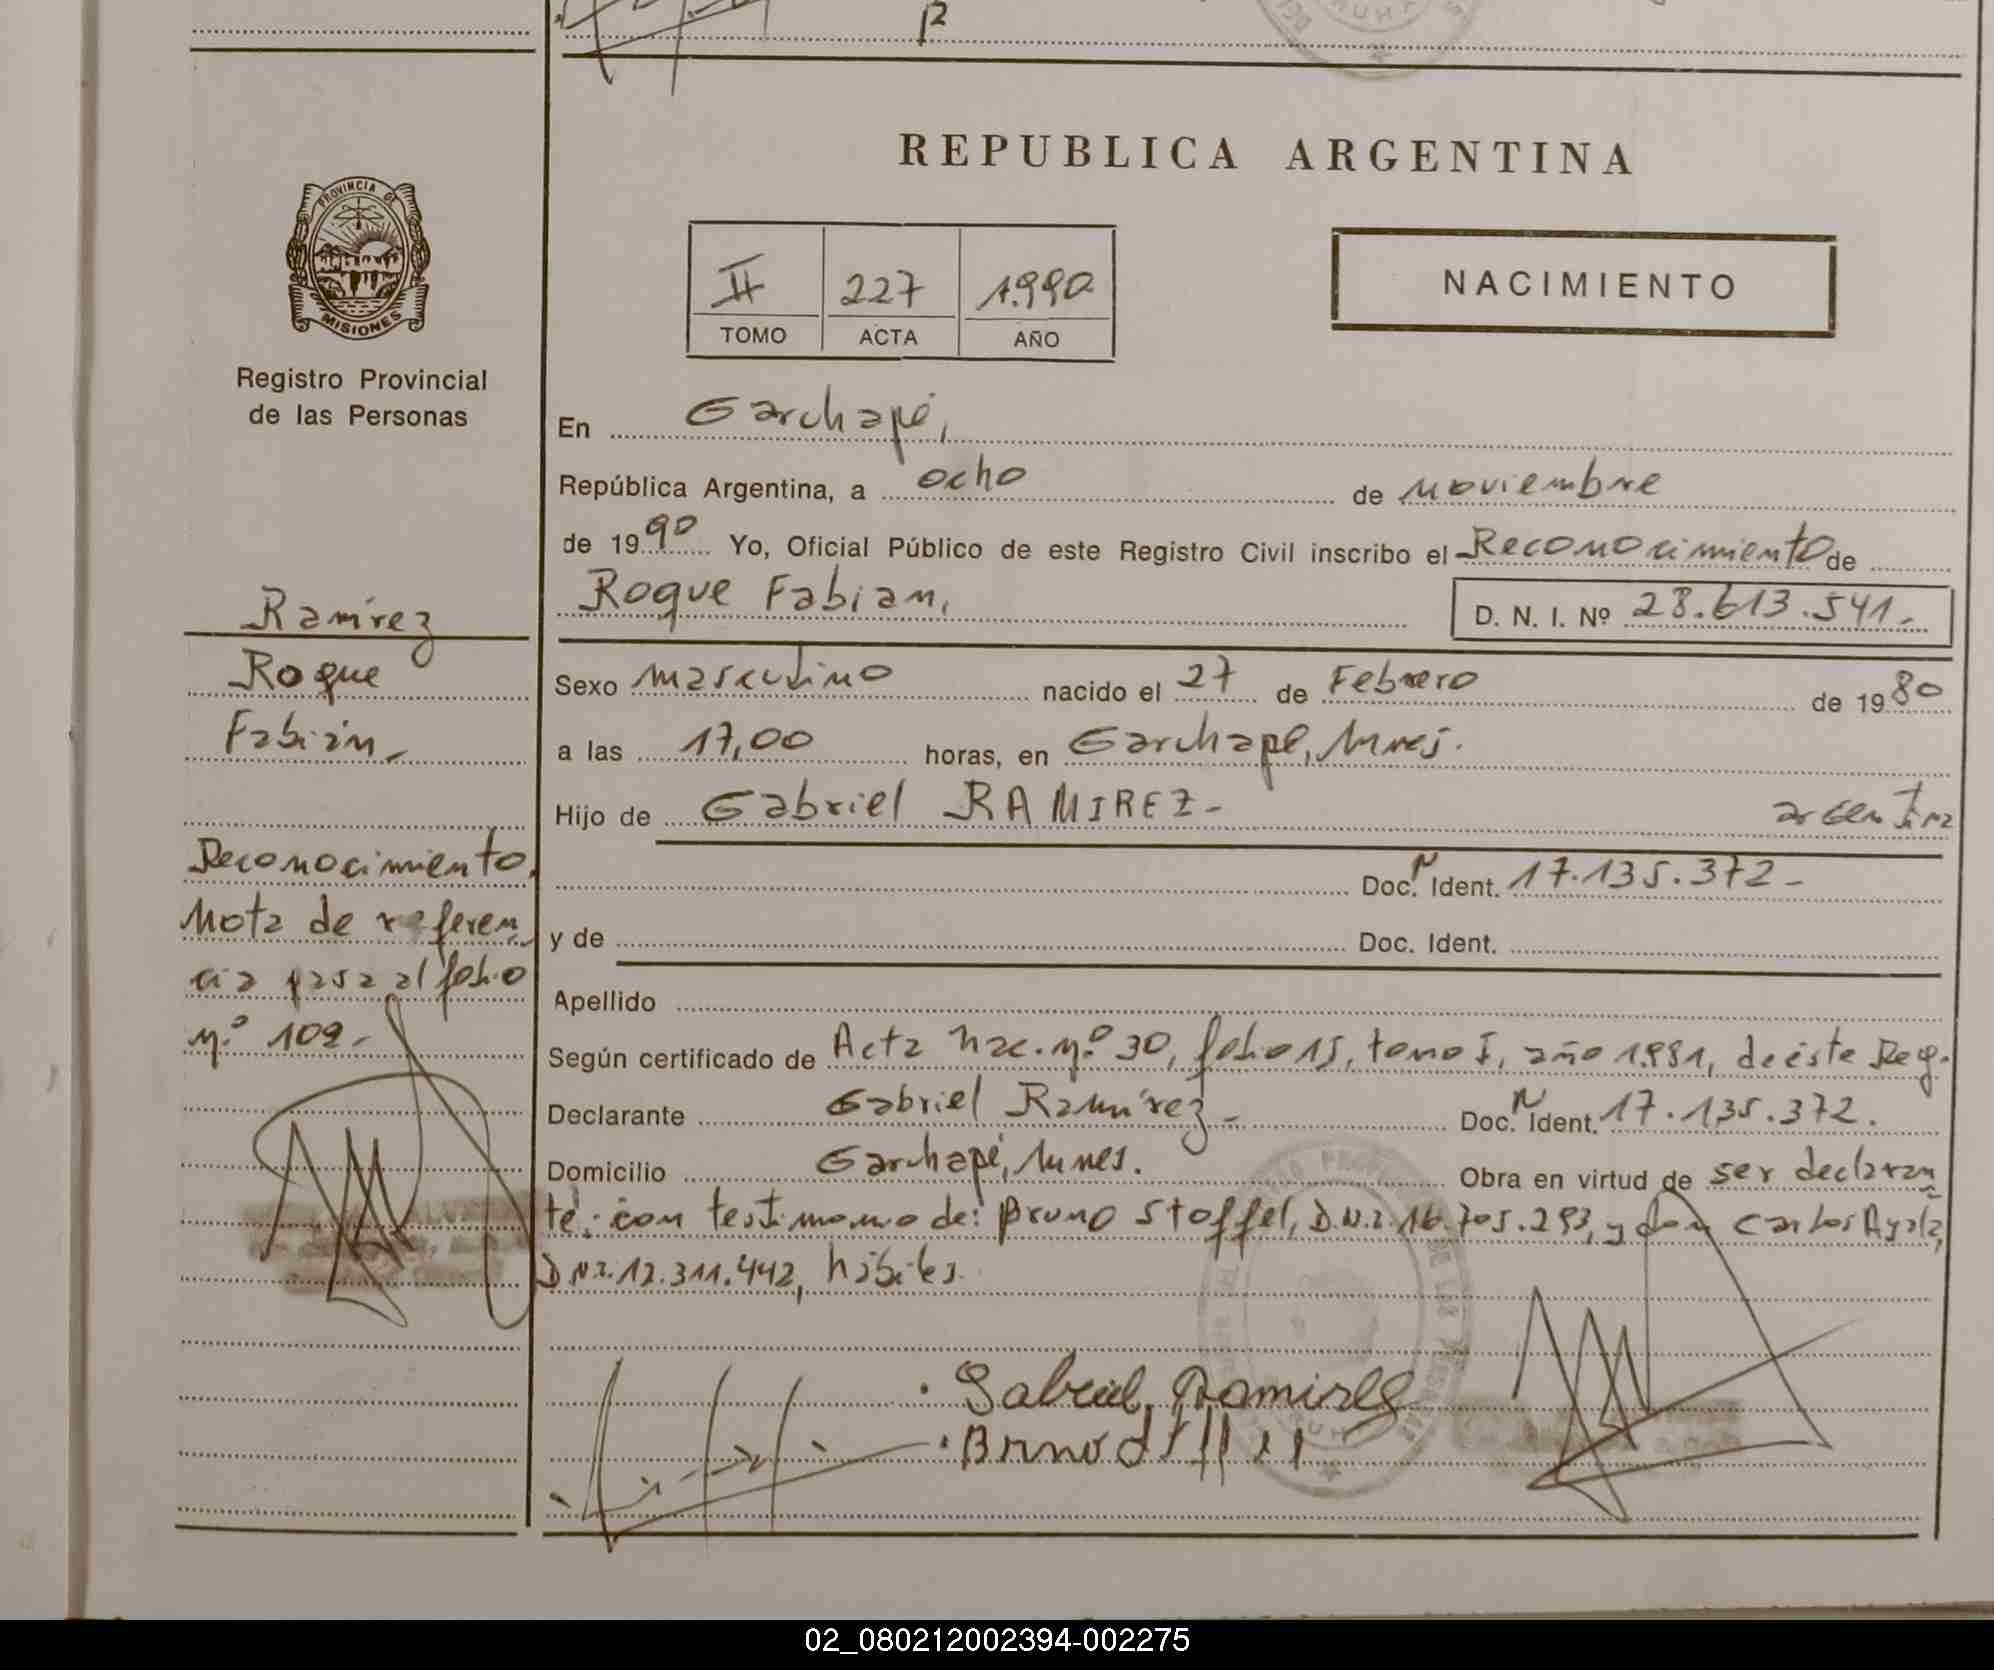 12
REPUBLICA ARGENTINA
PROVINCIA DE
MISIONES
Registro Provincial
de las Personas
II 227 1.990
TOMO ACTA AÑO
NACIMIENTO
En Garchapé,
República Argentina, a ocho de noviembre
de 1990 Yo, Oficial Público de este Registro Civil inscribo el Reconocimiento de
Roque Fabian, D. N. I. Nº 28.613.541.-
Ramírez
Roque
Fabián.-
Sexo masculino nacido el 27 de Febrero de 1980
a las 17,00 horas, en Garchapé, Mnes.
Hijo de Gabriel RAMIREZ- argentina
Doc. N Ident. 17.135.372-
y de Doc. Ident.
Apellido
Según certificado de Acta Nac. nº 30, folio 15, tomo I, año 1.981, de éste Reg.
Declarante Gabriel Ramírez.- Doc. N Ident. 17.135.372.
Domicilio Garchapé, Mnes. Obra en virtud de ser declaran
te; con testimonio de: Bruno Stoffel, D.N.I. 16.705.293, y don Carlos Ayala,
D.N.I. 12.311.442, hábiles.
Reconocimiento.
Nota de referen
cia pasa al folio
nº 109-
Gabriel Ramirez
Bruno
02_080212002394-002275